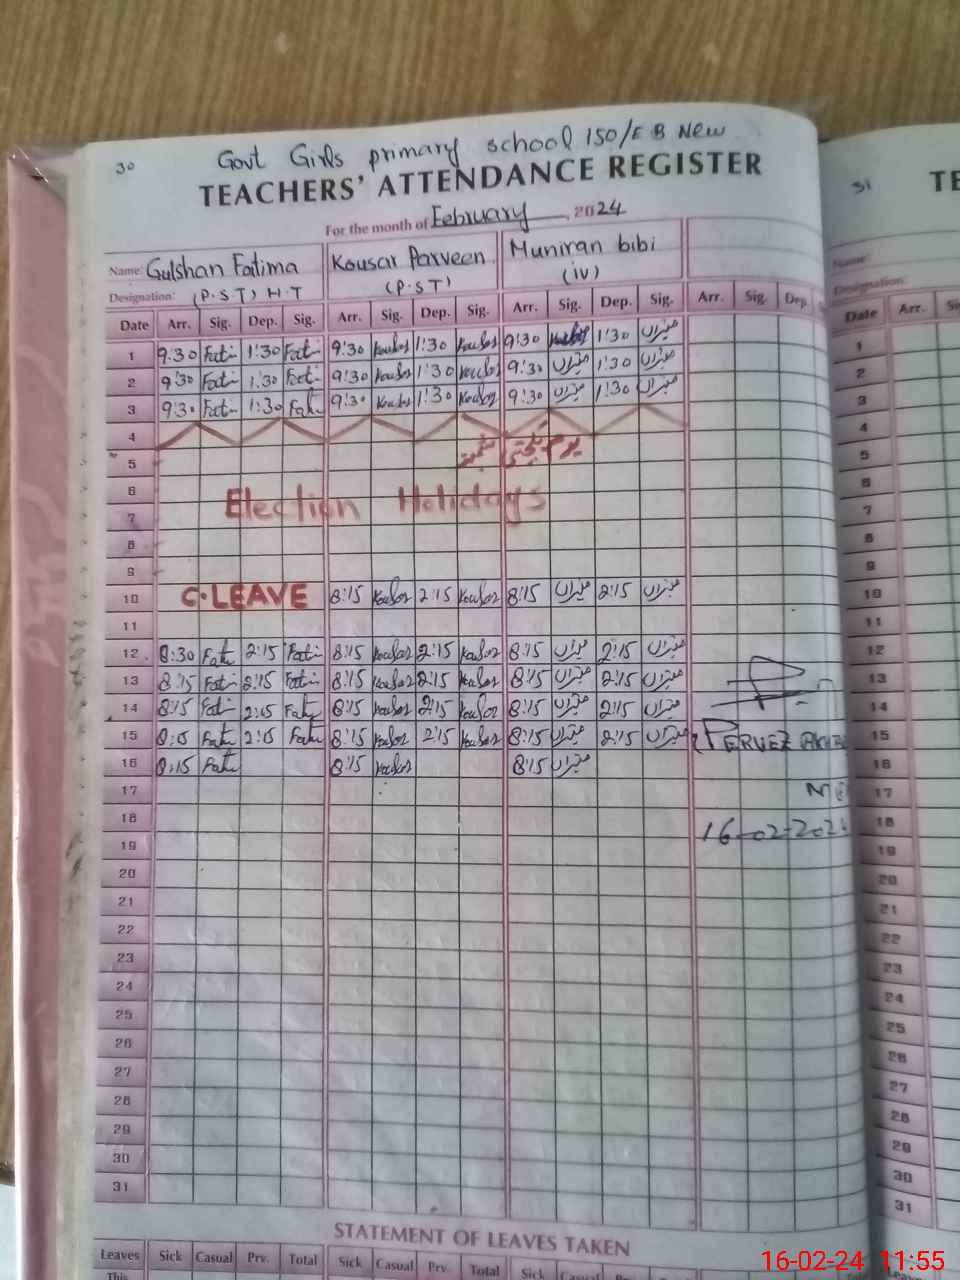 30
Govt Girls primary school 150/E B New
TEACHERS' ATTENDANCE REGISTER
For the month of February, 2024
Name: Gulshan Fatima Kousar Parveen Muniran bibi
Designation: (P.S.T) H.T (P.S.T) (iv)
Date Arr. Sig. Dep. Sig. Arr. Sig. Dep. Sig. Arr. Sig. Dep. Sig. Arr. Sig. Dep.
1 9:30 Fati 1:30 Fati 9:30 Kousar 1:30 Kousar 9:30 1:30 منیراں
2 9:30 Fati 1:30 Fati 9:30 Kousar 1:30 Kousar 9:30 منیراں 1:30 منیراں
3 9:30 Fati 1:30 Fati 9:30 Kousar 1:30 Kousar 9:30 منیراں 1:30 منیراں
4
5 یوم یکجہتی کشمیر
6 Election Holidays
7
8
9
10 C.LEAVE 8:15 Kousar 2:15 Kousar 8:15 منیراں 2:15 منیراں
11
12 8:30 Fati 2:15 Fati 8:15 Kousar 2:15 Kousar 8:15 منیراں 2:15 منیراں
13 8:15 Fati 2:15 Fati 8:15 Kousar 2:15 Kousar 8:15 منیراں 2:15 منیراں
14 8:15 Fati 2:15 Fati 8:15 Kousar 2:15 Kousar 8:15 منیراں 2:15 منیراں
15 8:15 Fati 2:15 Fati 8:15 Kousar 2:15 Kousar 8:15 منیراں 2:15 منیراں PERVEZ
16 8:15 Fati 8:15 Kousar 8:15 منیراں
17
18 16-02-2024
19
20
21
22
23
24
25
26
27
28
29
30
31
STATEMENT OF LEAVES TAKEN
Leaves Sick Casual Prv. Total Sick Casual Prv. Total Sick Casual
This
31
TE
Name:
Designation:
Date Arr.
1
2
3
4
5
6
7
8
9
10
11
12
13
14
15
16
17
18
19
20
21
22
23
24
25
26
27
28
29
30
31
16-02-24 11:55